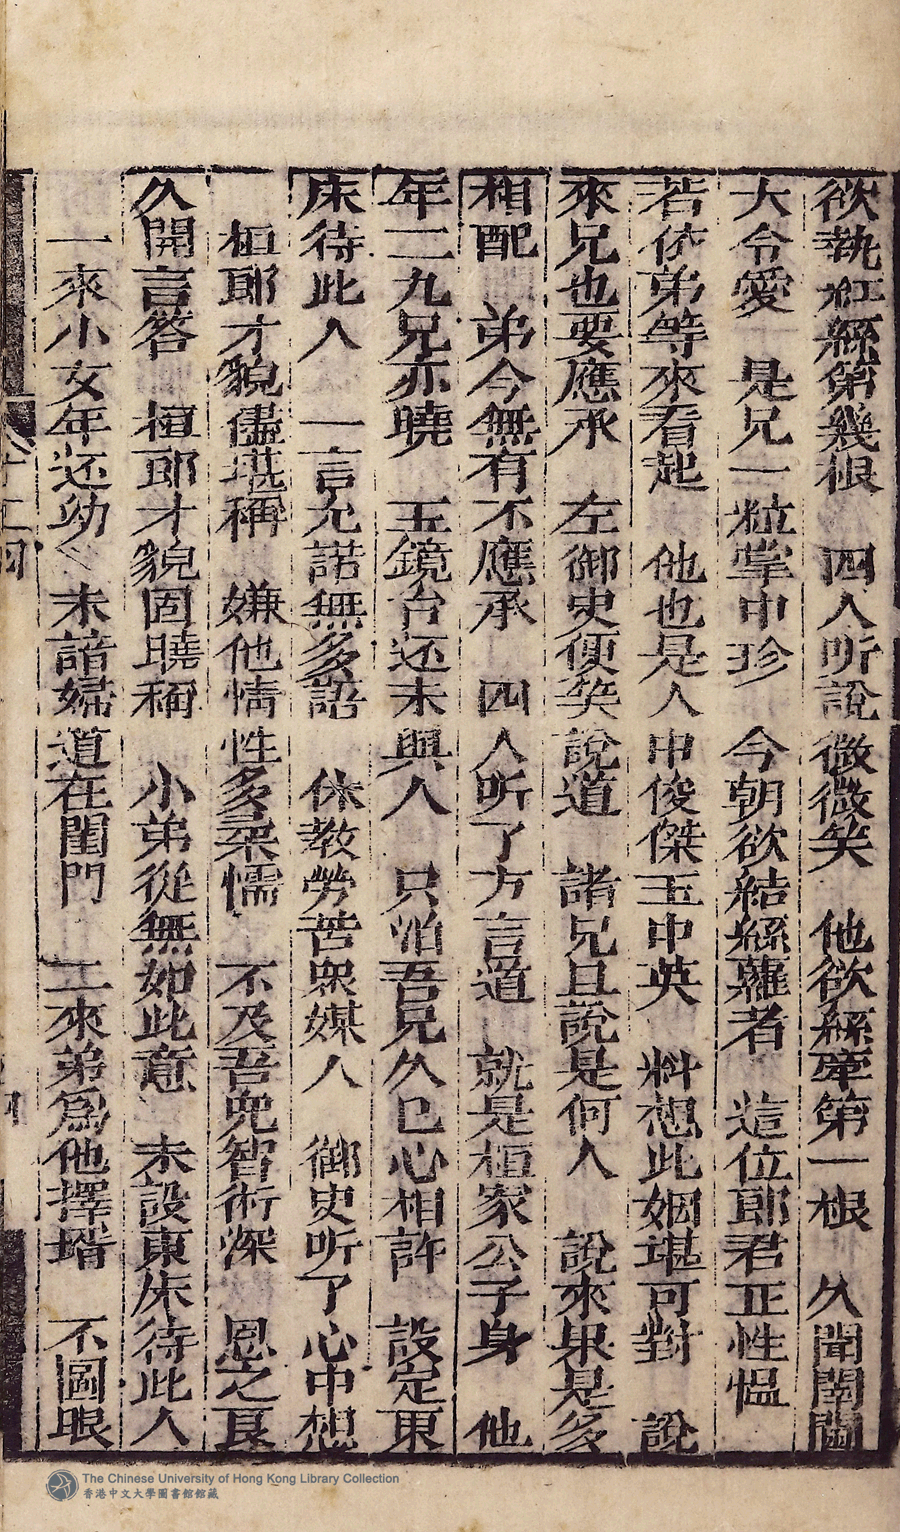 欲執紅絲第幾根　四人听說微微笑　他欲絲牽第一根　久聞閨閫
大令愛　是兄一粒掌中珍　今朝欲結絲蘿者　這位郎君正性慍
若依弟等來看起　他也是人中俊傑玉中英　料想此姻堪可對　說
來兄也要應承　左御史便笑說道　諸兄且說是何人　說來果是多
相配　弟今無有不應承　四人听了方言道　就是桓家公子身　他
年二九兄亦曉　玉鏡台还未與人　只怕吾兄久已心相許　設定東
床待此人　一言允諾無多語　休教勞苦衆媒人　御史听了心中想
桓郎才貌儘堪稱　嫌他情性多柔懦　不及吾兜智術深　思之良
久開言答　桓郎才貌固曉稱　小弟從無如此意　未設東床待此人
一來小女年还幼　未諳婦道在閨門　二來弟為他擇壻　不圖眼
十二
四
The Chinese University of Hong Kong Library Collection
香港中文大學圖書館館藏